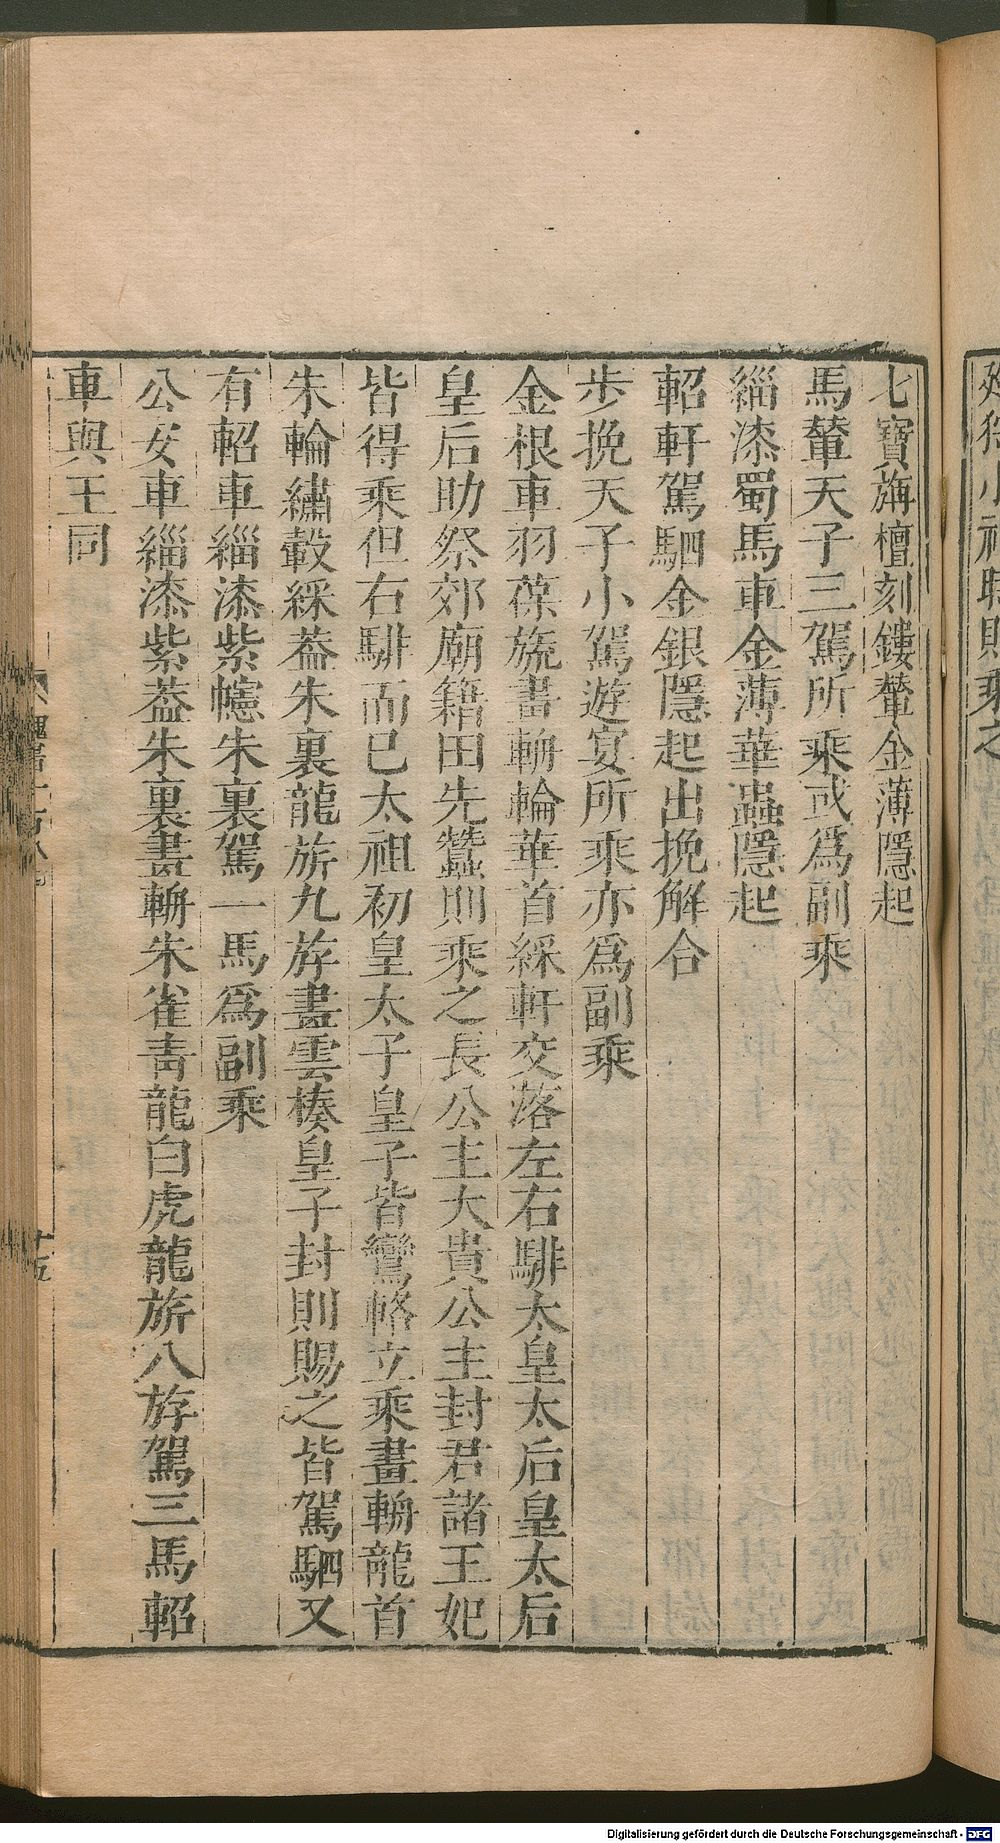 七寶旃檀刻鏤輦金薄隱起
馬輦天子三駕所乘或爲副乘
緇漆蜀馬車金薄華蟲隱起
軺軒駕駟金銀隱起出挽解合
步挽天子小駕遊宴所乘亦爲副乘
金根車羽葆旒畫輈輪華首綵軒交落左右騑太皇太后皇太后
皇后助祭郊廟籍田先蠶則乘之長公主大貴公主封君諸王妃
皆得乘但右騑而已太祖初皇太子皇子皆鸞輅立乘畫輈龍首
朱輪繡轂綵蓋朱裏龍旂九斿畫雲榛皇子封則賜之皆駕駟又
有軺車緇漆紫幰朱裏駕一馬爲副乘
公安車緇漆紫蓋朱裏畫輈朱雀青龍白虎龍旂八斿駕三馬軺
車與王同
十五
小祀時則乘之
Digitalisierung gefördert durch die Deutsche Forschungsgemeinschaft - DFG